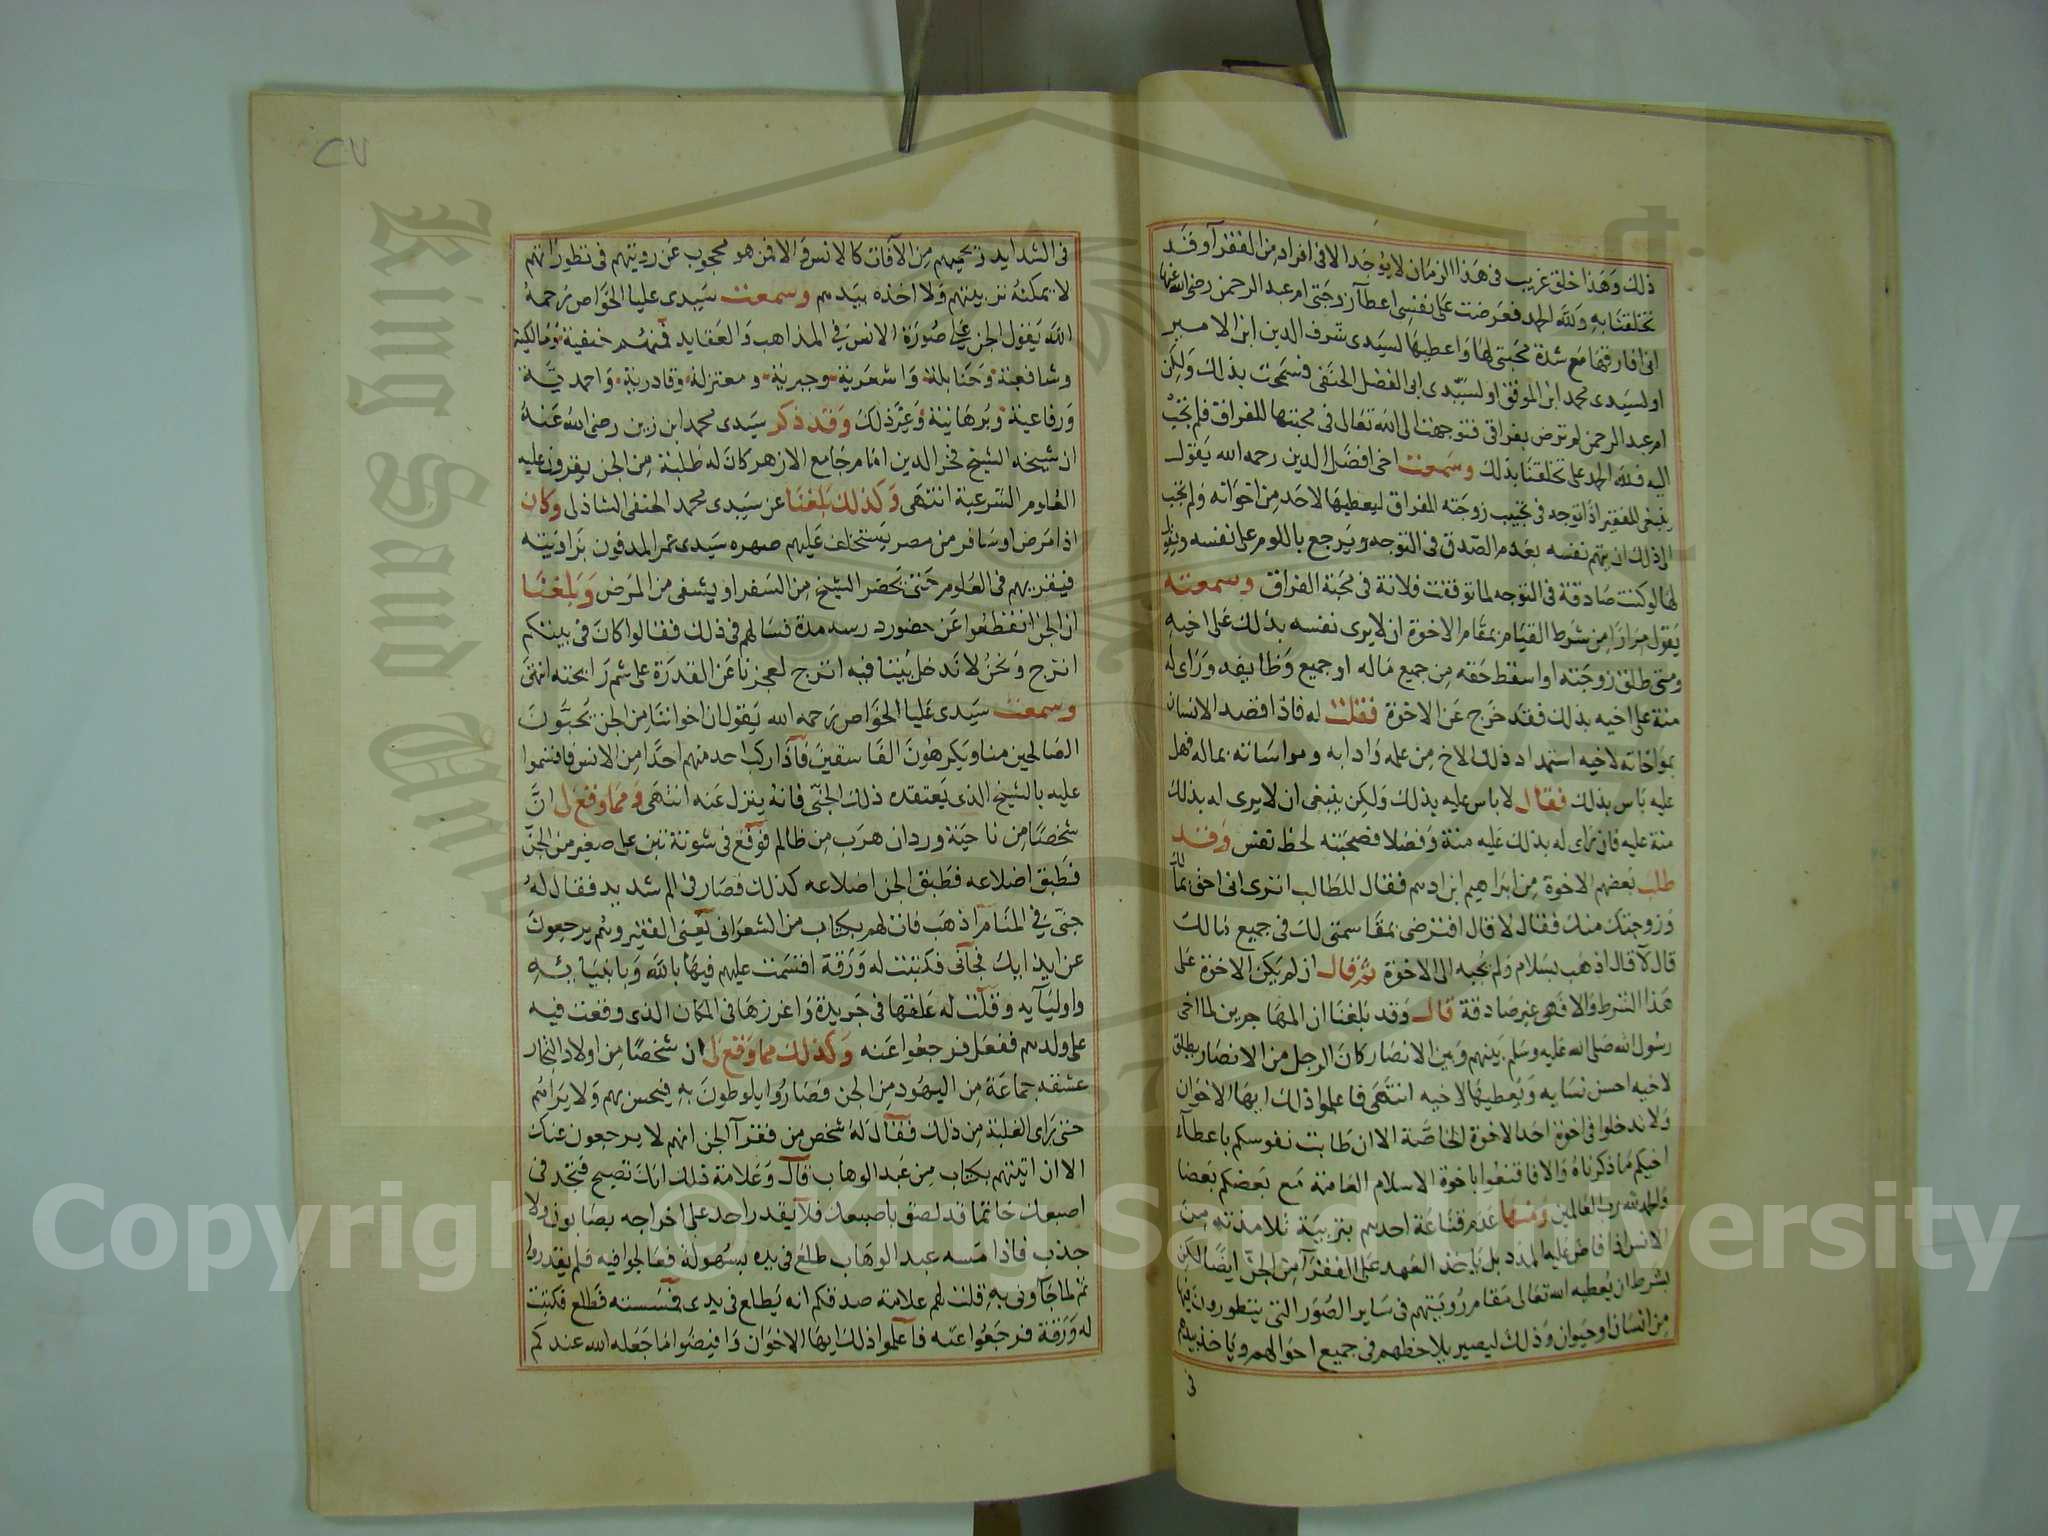 ذلك وهذا خلق غريب في هذا الزمان لا يوجد الا في افراد من الفقرآ وقد
تخلقنا به ولله الحمد فعرضت على نفسي اعطآ زوجتي ام عبد الرحمن رضي الله عنها
اني افارقها مع شدة محبتي لها واعطيها لسيدى شرف الدين ابن الامير
او لسيدى محمد ابن الموفق او لسيدى ابى الفضل الحنفى فسمحت بذلك ولكن
ام عبد الرحمن لم ترض بفراقى فتوجهت الى الله تعالى في محبتها للفراق فلم تجب
اليه فلله الحمد على تخلقنا بذلك وسمعت اخى افضل الدين رحمه الله يقول
ينبغى للفقير اذا توجه في تحبيب زوجته الفراق ليعطيها لاحد من اخوانه ولم تجب
الى ذلك ان يتهم نفسه بعدم الصدق في التوجه ويرجع باللوم على نفسه ويقول
لها لو كنت صادقة في التوجه لما توقفت فلانة في محبة الفراق وسمعته
يقول مرارا من شرط القيام بمقام الاخوة ان لا يرى نفسه بذلك على اخيه
ومتى طلق زوجته او اسقط حقه من جميع ماله او جميع وظايفه وراى له
منة على اخيه بذلك فقد خرج عن الاخوة فقلت له فاذا قصد الانسان
بمواخاته لاخيه استمداد ذلك الاخ من علمه وادابه ومواساته بماله فهل
عليه باس بذلك فقال لا باس عليه بذلك ولكن ينبغى ان لا يرى له بذلك
منة عليه فان راى له بذلك عليه منة وفضلا فصحبته لحظ نفس وقد
طلب بعضهم الاخوة من ابراهيم ابن ادهم فقال للطالب اترى انى احق بمالك
وزوجتك منك فقال لا قال افترضى بمقاسمتى لك في جميع مالك
قال لا قال اذهب بسلام ولم يجبه الى الاخوة ثم قال ان لم يكن الاخوة على
هذا الشرط والا فهى غير صادقة قال وقد بلغنا ان المهاجرين لما اخى
رسول الله صلى الله عليه وسلم بينهم وبين الانصار كان الرجل من الانصار يطلق
لاخيه احسن نسايه ويعطيها لاخيه انتهى فاعلموا ذلك ايها الاخوان
ولا تدخلوا في اخوة احد الاخوة الخاصة الا ان طابت نفوسكم باعطآء
اخيكم ما ذكرناه والا فاقنعوا باخوة الاسلام العامة مع بعضكم بعضا
والحمد لله رب العالمين ومنها عدم قناعة احدهم بتربية تلامذته من
الانس اذا فاض عليه المدد بل ياخذ العهد على الفقرآ من الجن ايضا لكن
بشرط ان يعطيه الله تعالى مقام رؤيتهم في ساير الصور التى يتطورون فيها
من انسان او حيوان وذلك ليصير يلاحظهم في جميع احوالهم وياخذ بيدهم
في
في الشدايد ويحميهم من الآفات كالانس والا فمن هو محجوب عن رويتهم في تطوراتهم
لا يمكنه تربيتهم ولا اخذه بيدهم وسمعت سيدى عليا الخواص رحمه
الله يقول الجن على صورة الانس في المذاهب والعقايد فمنهم حنفية ومالكية
وشافعية وحنابلة واشعرية وجبرية ومعتزلة وقادرية واحمدية
ورفاعية وبرهانية وغير ذلك وقد ذكر سيدى محمد ابن زين رضى الله عنه
ان شيخه الشيخ فخر الدين امام جامع الازهر كان له طلبة من الجن يقرون عليه
العلوم الشرعية انتهى وكذلك بلغنا عن سيدى محمد الحنفى الشاذلى وكان
اذا مرض او سافر من مصر يستخلف عليهم صهره سيدى عمر المدفون بزاويته
فيقريهم في العلوم حتى يحضر الشيخ من السفر او يشفى من المرض وبلغنا
ان الجن انقطعوا عن حضور درسه مدة فسالهم في ذلك فقالوا كان في بيتكم
اترج ونحن لا ندخل بيتا فيه اترج لعجزنا عن القدرة على شم رايحته انتهى
وسمعت سيدى عليا الخواص رحمه الله يقول ان اخواننا من الجن يحبون
الصالحين منا ويكرهون الفاسقين فاذا ركب احد منهم احدا من الانس فاقسموا
عليه بالشيخ الذى يعتقده ذلك الجنى فانه ينزل عنه انتهى ومما وقع لى ان
شخصا من ناحية وردان هرب من ظالم فوقع في شونة تبن على صغير من الجن
فطبق اضلاعه فطبق الجن اضلاعه كذلك فصار في الم شديد فقال له
جنى في المنام اذهب فات لهم بكتاب من الشعرانى يعنى الفقير وهم يرجعون
عن ايذايك فجآنى فكتبت له ورقة اقسمت عليهم فيها بالله وبانبيائه
واوليآيه وقلت له علقها في جريدة واغرزها في المكان الذى وقعت فيه
على ولدهم ففعل فرجعوا عنه وكذلك مما وقع لى ان شخصا من اولاد التجار
عشقه جماعة من اليهود من الجن فصاروا يلوطون به فيحس بهم ولا يراهم
حتى راى الغلبة من ذلك فقال له شخص من فقرآ الجن انهم لا يرجعون عنك
الا ان اتيتهم بكتاب من عبد الوهاب قال وعلامة ذلك انك تصبح فتجد في
اصبعك خاتما قد لصق باصبعك فلا يقدر احد على اخراجه بصابون ولا
جذب فاذا مسه عبد الوهاب طلع في يده بسهولة فعالجوا فيه فلم يقدروا
ثم لما جآونى به قلت لهم علامة صدقكم انه يطلع في يدى فمسسته فطلع فكتبت
له ورقة فرجعوا عنه فاعلموا ذلك ايها الاخوان وافيضوا ما جعله الله عندكم
King Saud University
1957
Copyright © King Saud University